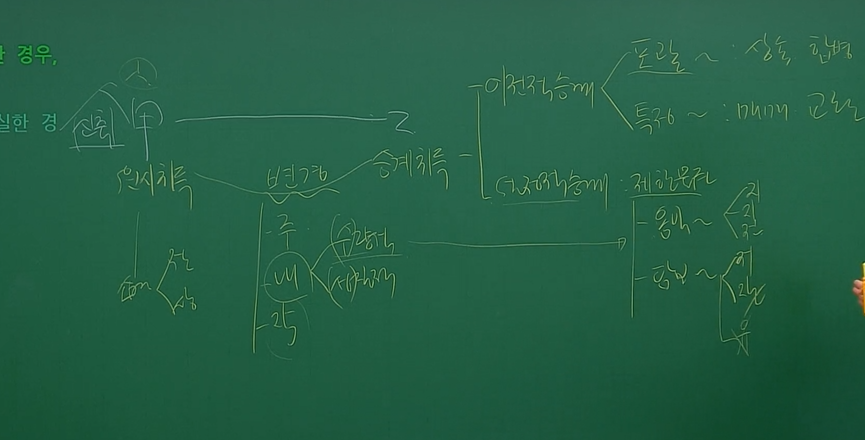 한 경우,
실한 경
신축
甲
乙
원시취득
변경
승계취득
이전적승계
포괄~ : 상속 합병
특정~ : 매매 교환
설정적승계 : 제한물권
- 용익~
지
전
- 담보~
유
- 주
- 내
수량적
성질적
- 작